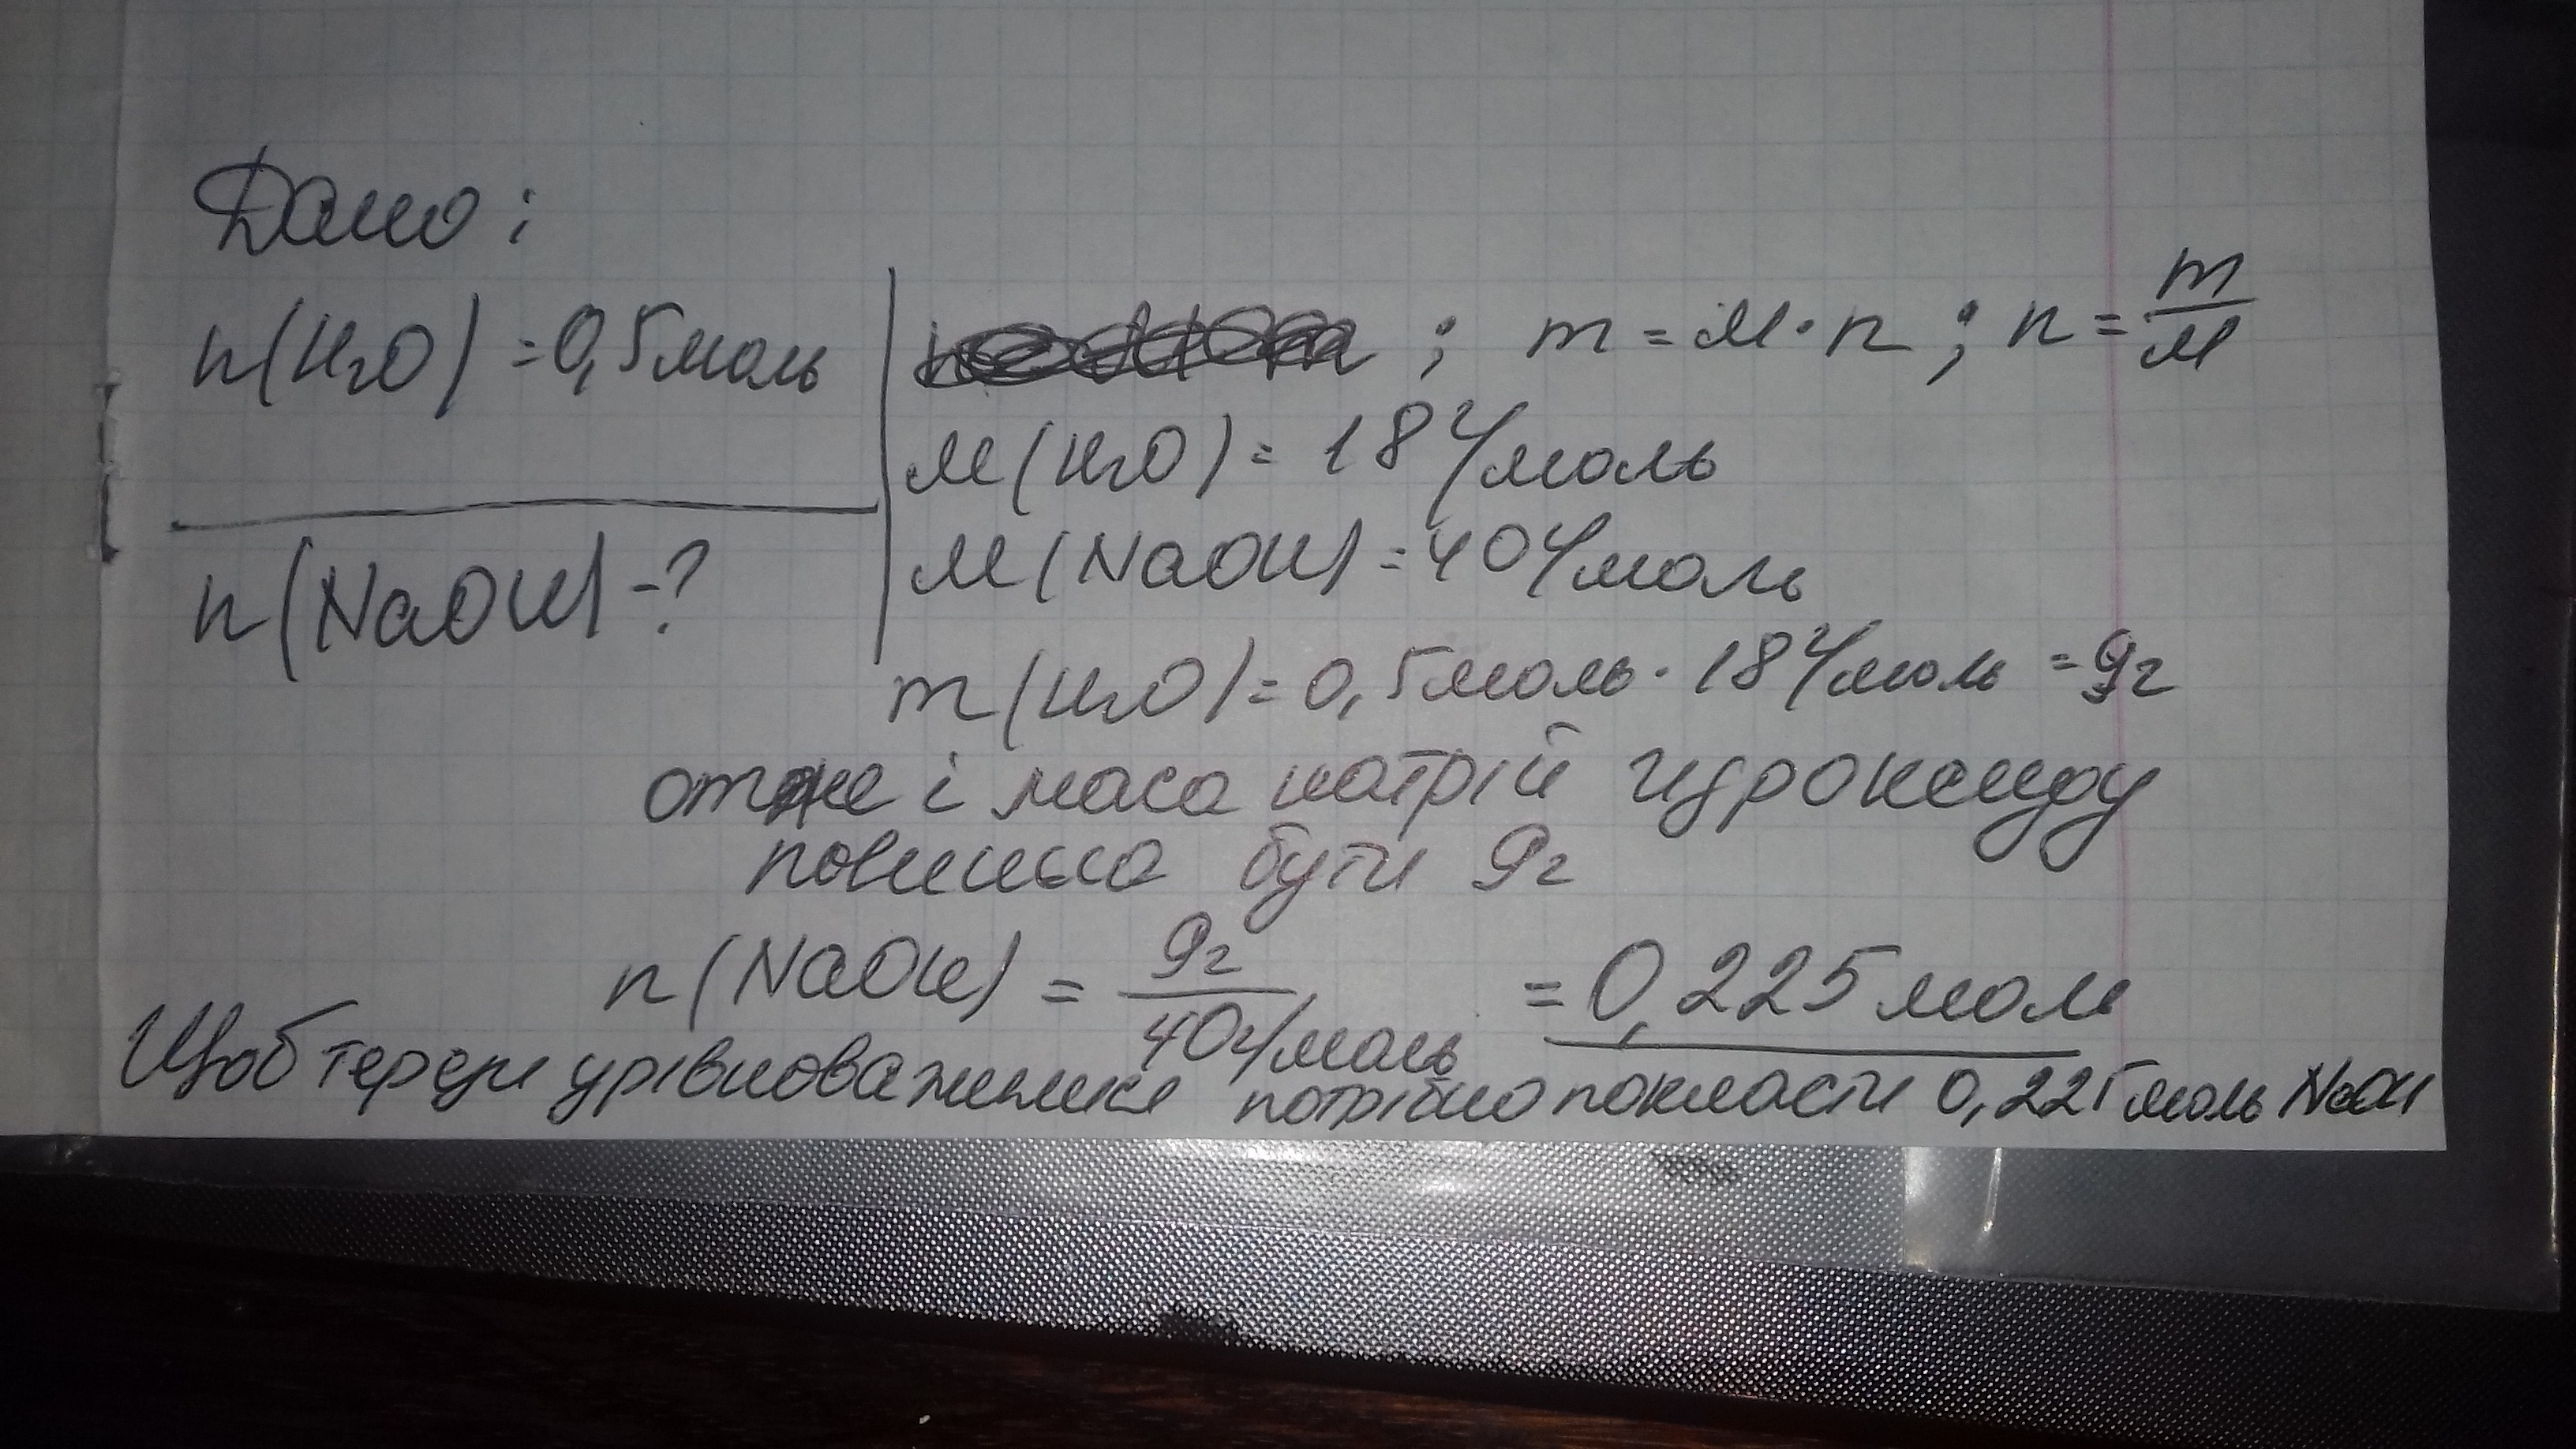 Дано:
n(H₂O) = 0,5 моль
; m = M · n ; n = m/M
M(H₂O) = 18 г/моль
M(NaOH) = 40 г/моль
n(NaOH) - ?
m(H₂O) = 0,5 моль · 18 г/моль = 9г
отже і маса натрій гідроксиду
повинна бути 9г
n(NaOH) = 9г/40г/моль = 0,225 моль
Щоб терези урівноважились потрібно покласти 0,225 моль NaOH